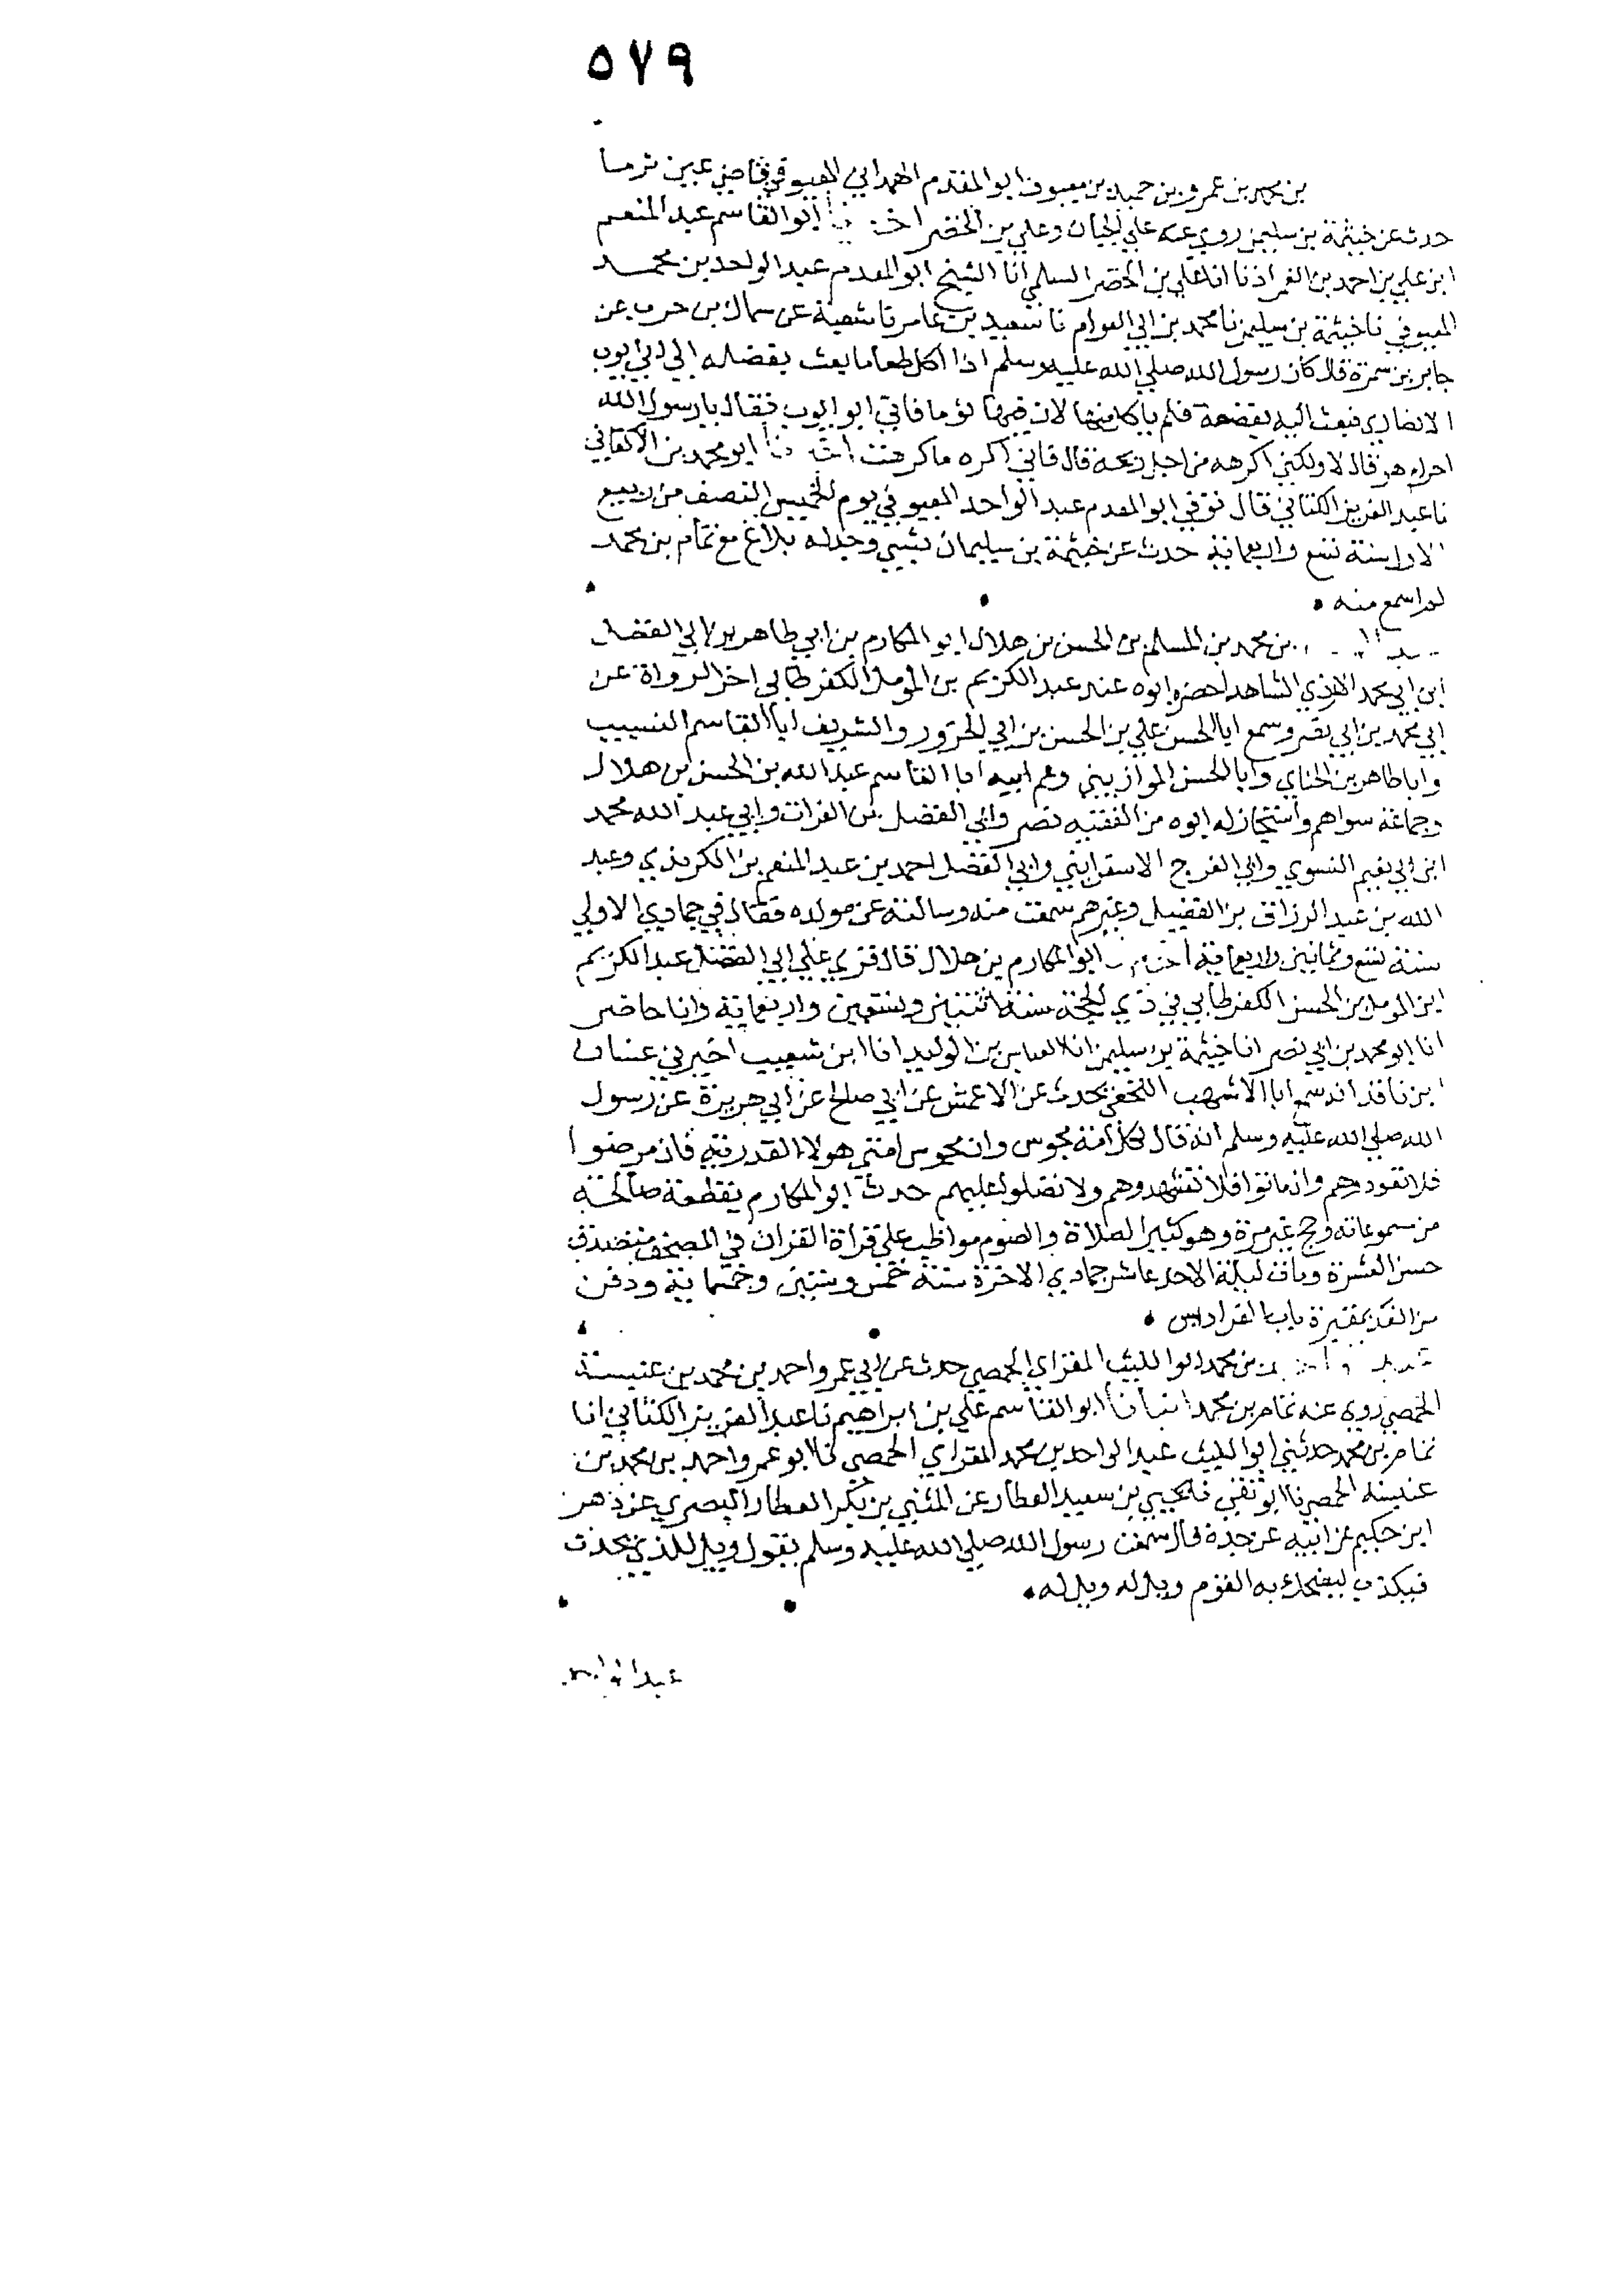 ٥٧٩
بن محمد بن عمرو بن حميد بن معيوف ابو المقدم الهمداني المعيوفي قاضي عين ثرما
حدث عن خيثمة بن سليمن روي عنه علي الجبان وعلي بن الخضر ابو القاسم عبد المنعم
ابن علي بن احمد بن الغمر اذنا انا علي بن الخضر السلمي انا الشيخ ابو المقدم عبد الواحد بن محمد
المعيوفي نا خيثمة بن سليمن نا محمد بن ابي العوام نا سعيد بن عامر نا شعبة عن سماك بن حرب عن
جابر بن سمرة قال كان رسول الله صلي الله عليه وسلم اذا اكل طعاما بعث بفضله الي ابي ايوب
الانصاري فبعث اليه بقصعة فلم ياكل منها لان فيها ثوما فاتي ابو ايوب فقال يا رسول الله
احرام هو قال لا ولكني اكرهه من اجل ريحه قال فاني اكره ما كرهت ابو محمد بن الاكفاني
نا عبد العزيز الكتاني قال توفي ابو المقدم عبد الواحد المعيوفي يوم الخميس النصف من ربيع
الاول سنة تسع واربعمائة حدث عن خيثمة بن سليمان بشيي وجد له بلاغ مع تمام بن محمد
لم اسمع منه
بن محمد بن المسلم بن الحسن بن هلال ابو المكارم بن ابي طاهر بن ابي الفضل
ابن ابي محمد الازدي الشاهد احضره ابوه عند عبد الكريم بن المومل الكفرطابي اخر الرواة عن
ابي محمد بن ابي نصر وسمع ابا الحسن علي بن الحسن بن ابي الحزور والشريف ابا القاسم النسيب
وابا طاهر بن الحنائي وابا الحسن الموازيني وعم ابيه ابا القاسم عبد الله بن الحسن بن هلال
وجماعة سواهم واستجاز له ابوه من الفقيه نصر وابي الفضل بن الفرات وابي عبد الله محمد
ابن ابي نعيم النسوي وابي الفرج الاسفرايني وابي الفضل احمد بن عبد المنعم بن الكريدي وعبد
الله بن عبد الرزاق بن الفضيل وغيرهم سمعت منه وسالته عن مولده فقال في جمادي الاولي
سنة تسع وثمانين واربعمائة ابو المكارم بن هلال قال قري علي ابي الفضل عبد الكريم
ابن المومل بن الحسن الكفرطابي في ذي الحجة سنة اثنتين وتسعين واربعمائة وانا حاضر
انا ابو محمد بن ابي نصر انا خيثمة بن سليمن انا العباس بن الوليد انا ابن شعيب اخبرني غسان
ابن ناقد انه سمع ابا الاشهب النخعي يحدث عن الاعمش عن ابي صالح عن ابي هريرة عن رسول
الله صلي الله عليه وسلم انه قال لكل امة مجوس وان مجوس امتي هولاء القدرية فان مرضوا
فلا تعودوهم وان ماتوا فلا تشهدوهم ولا تصلوا عليهم حدث ابو المكارم بقطعة صالحة
من سموعاته وحج غير مرة وهو كثير الصلاة والصوم مواظب علي قراة القران في المصحف متصدق
حسن العشرة ومات ليلة الاحد عاشر جمادي الاخرة سنة خمس وستين وخمسمائة ودفن
من الغد بمقبرة باب الفراديس
بن محمد ابو الليث المقراي الحمصي حدث عن ابي عمرو احمد بن محمد بن عنبسة
الحمصي روي عنه تمام بن محمد انبانا ابو القاسم علي بن ابراهيم نا عبد العزيز الكتاني انا
تمام بن محمد حدثني ابو الليث عبد الواحد بن محمد المقراي الحمصي نا ابو عمرو احمد بن محمد بن
عنبسة الحمصي نا ابو تقي نا يحيي بن سعيد العطار عن المثني بن بكر العطار البصري عن بهز
ابن حكيم عن ابيه عن جده قال سمعت رسول الله صلي الله عليه وسلم يقول ويل للذي يحدث
فيكذب ليضحك به القوم ويل له ويل له
عبد الواحد